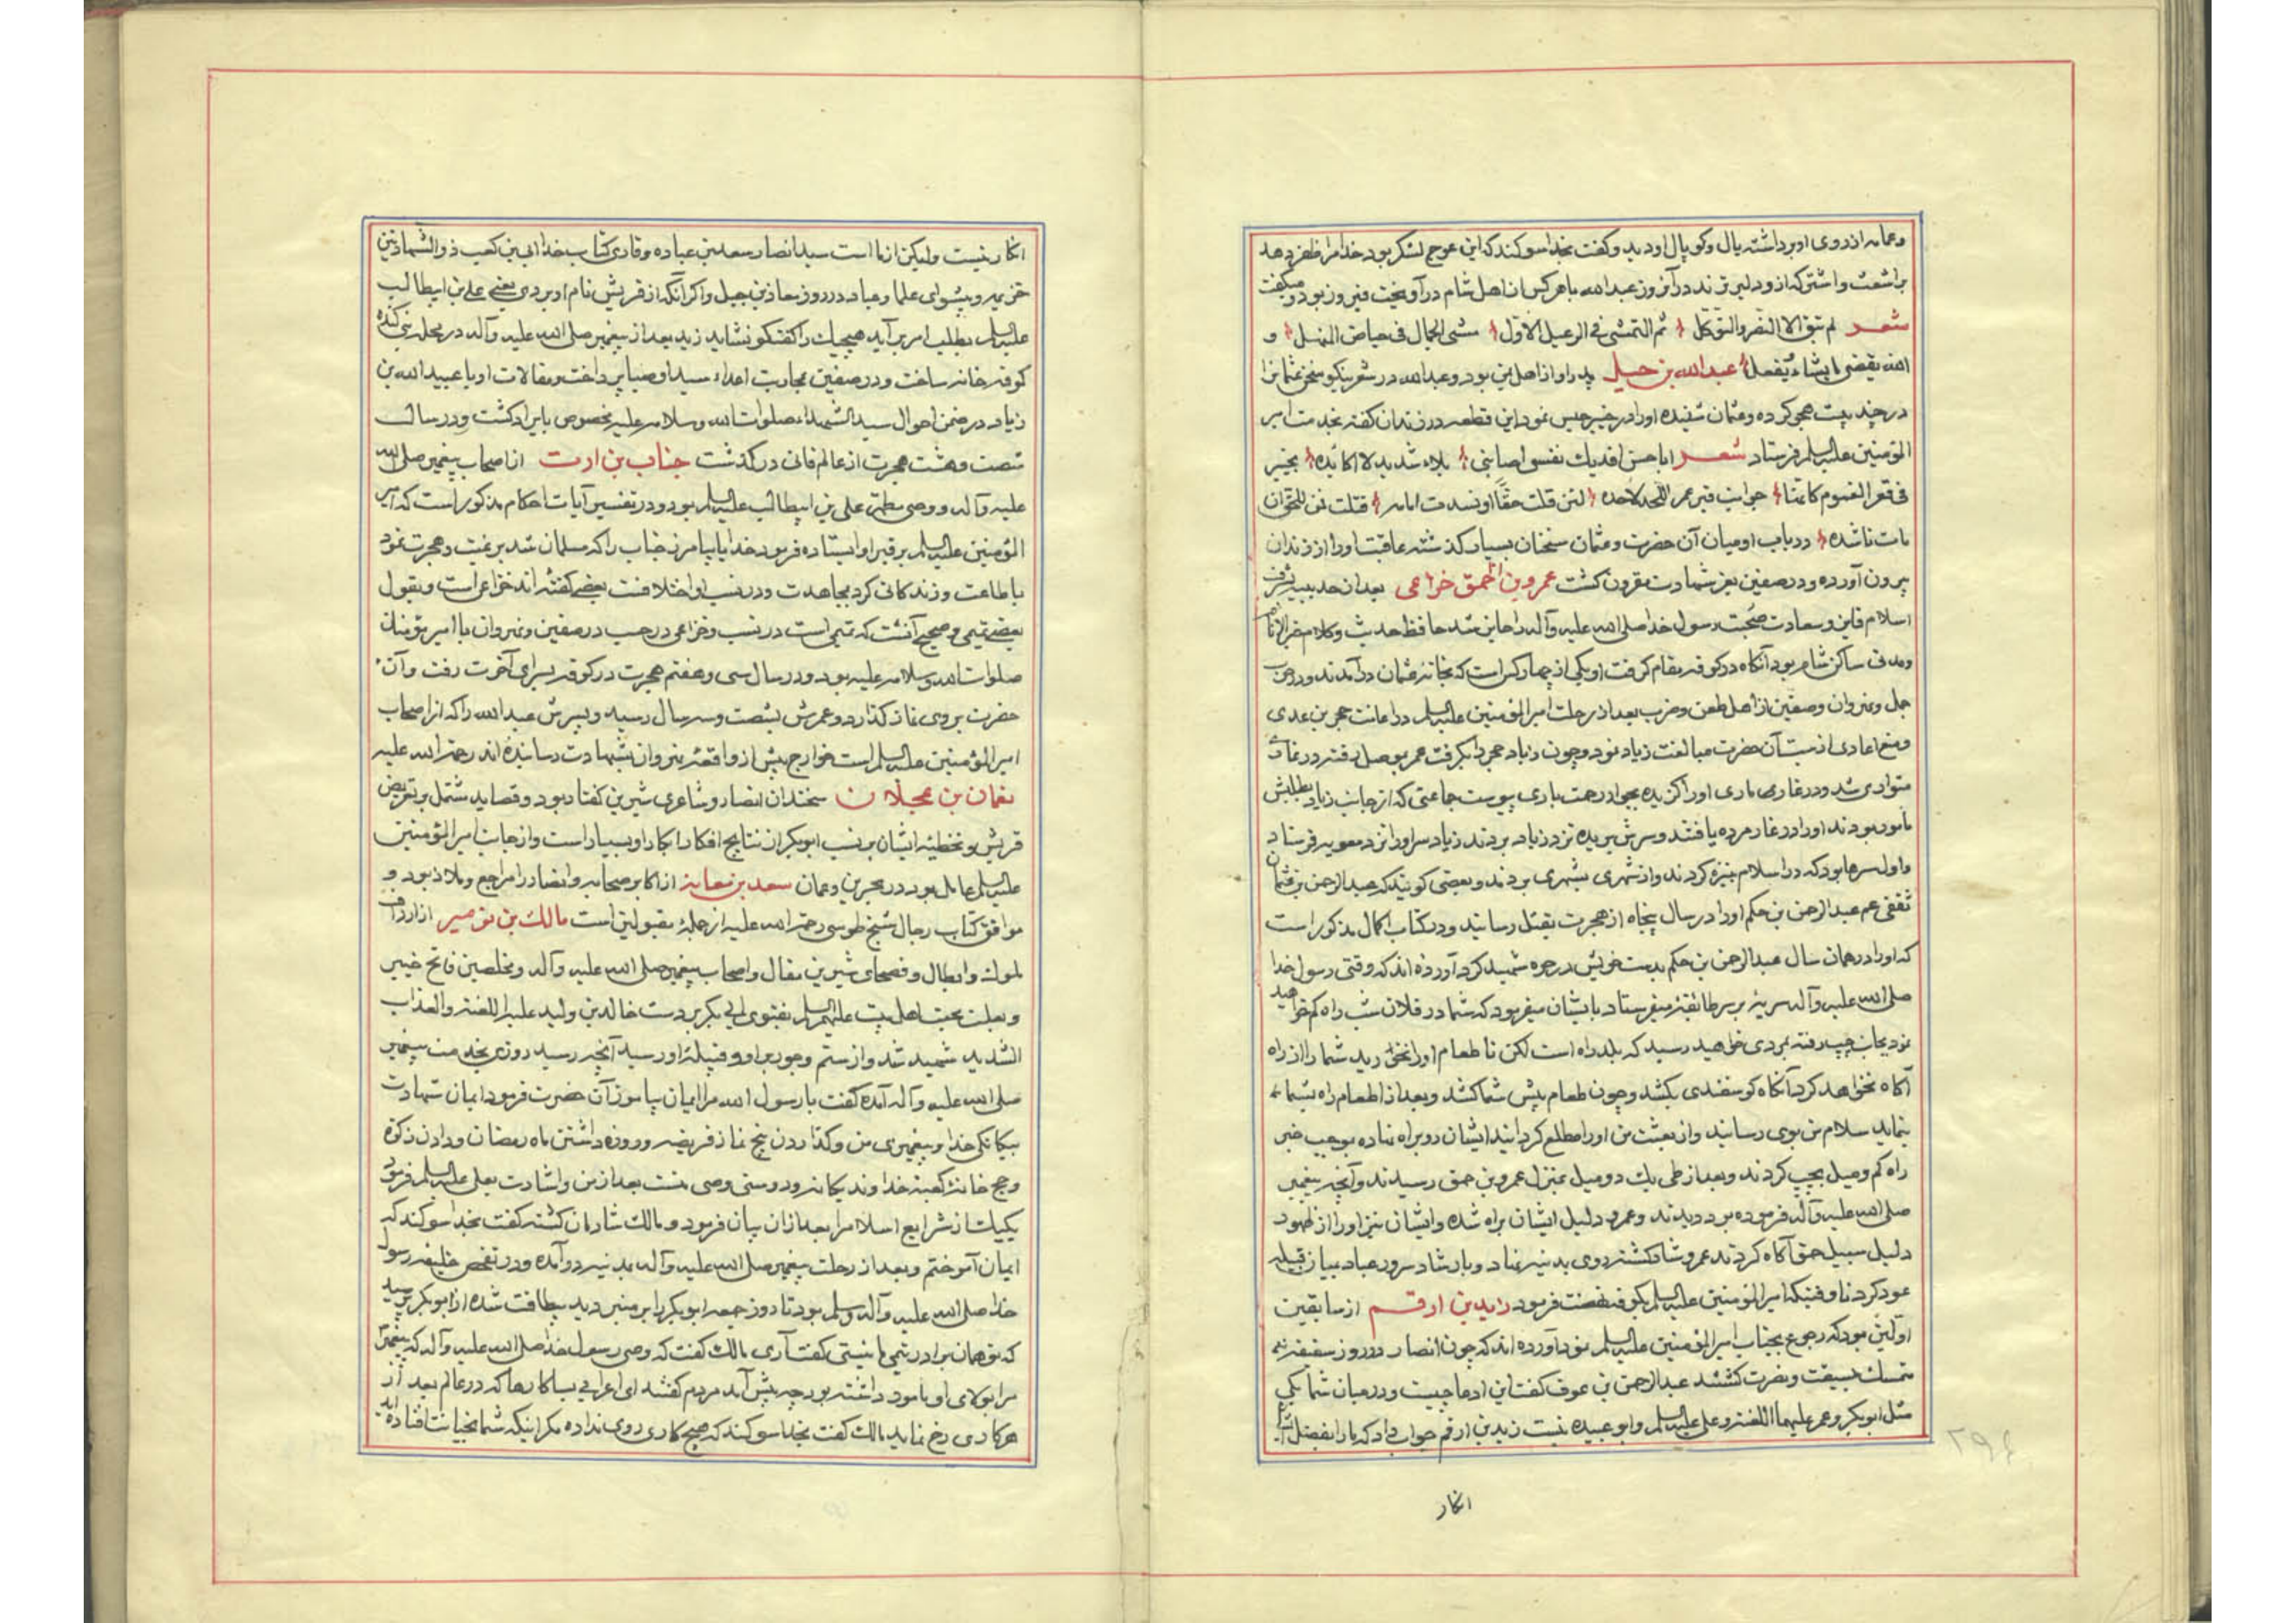 وعمامه از روی او برداشته یال وکوپال او دید وگفت بخدا سوکند که این عوج لشکر بود خدا مرا ظفر دهد
بر اشعث واشتر که از و دلیر ترند در آنروز عبدالله با هر کس از اهل شام در آویخت فیروز بود ومیگفت
شعر لم یبق الا الصبر والتوکل ثم التمشی فی الرعیل الاول مشی الجمال فی حیاض المنهل و
الله یقضی ما یشاء یفعل عبدالله بن حنبل پدر او از اهل یمن بود وعبدالله در شعر نیکو سخن عثمان را
در چند بیت هجی کرده وعثمان شنیده او را در خیبر حبس نمود این قطعه در زندان گفته بخدمت امیر
المؤمنین علیه السلم فرستاد شعر ابا حسن افدیک نفسی اصابنی بلاء شدید لا اکابده بخیبر
فی قعر الغموم کانما جوانب قبر عمر اللحد لاحده لئن قلت حقا او نسدت امامه قتلت فمن للحق ان
مات ناشده در باب او میان آن حضرت وعثمان سخنان بسیار کذشته عاقبت او را از زندان
بیرون آورده ودر صفین بعز شهادت مقرون کشت عمرو بن الحمق خزاعی بعد از حدیبیه بشرف
اسلام فایز وسعادت صحبت رسول خدا صلی الله علیه وآله را حایز شد حافظ حدیث وکلام
ومدتی ساکن شام بود آنکاه در کوفه مقام کرفت او یکی از چهار کس است که بخانه عثمان در آمدند ودر حرب
جمل ونهروان وصفین از اهل طعن وضرب بعد از رحلت امیر المؤمنین علیه السلم در اعانت حجر بن عدی
ومنع اعادی از سب آن حضرت مبالغت زیاد نمود وچون زیاد حجر را بکرفت عمر بموصل رفته در غار
متواری شد ودر غار ماری او را کزیده بجوار رحمت باری پیوست جماعتی که از جانب زیاد بطلبش
مامور بودند او را در غار مرده یافتند وسرش بریده نزد زیاد بردند زیاد سر او را نزد معویه فرستاد
واول سرها بود که در اسلام بنیزه کردند واز شهری بشهری بردند وبعضی کویند که عبدالرحمن بن عثمان
ثقفی عم عبدالرحمن بن حکم او را در سال پنجاه از هجرت بقتل رسانید ودر کتاب اکمال مذکور است
که او را در همان سال عبدالرحمن بن حکم بدست خویش در حره شهید کرد آورده اند که وقتی رسول خدا
صلی الله علیه وآله سریه بر سر طائفه میفرستاد با ایشان میفرمود که شما در فلان شب راه کم خواهید
نمود بجانب چپ رفته بمردی خواهید رسید که بلد راه است لکن تا طعام او را نخورید شما را از راه
آکاه نخواهد کرد آنکاه کوسفندی بکشد وچون طعام پیش شما کشد وبعد از اطعام راه بشما
بنماید سلام من بوی رسانید واز بعثت من او را مطلع کردانید ایشان رو براه نهاده بموجب خبر
راه کم ومیل بچپ کردند وبعد از طی یک دو میل بمنزل عمرو بن حمق رسیدند وآنچه پیغمبر
صلی الله علیه وآله فرموده بود دیدند وعمرو دلیل ایشان براه شده وایشان نیز او را از ظهور
دلیل سبیل حق آکاه کردند عمرو شاد کشته روی بمدینه نهاد وبارشاد سرور عباد بمیان قبیله
عود کرد تا وقتیکه امیر المؤمنین علیه السلم بکوفه نهضت فرمود زاید بن ارقم از سابقین
اولین بود که رجوع بجناب امیر المؤمنین علیه السلم نمود آورده اند که چون انصار در روز سقیفه
متمسک بسبقت ونصرت کشتند عبدالرحمن بن عوف کفت این ادعا چیست ودر میان شما یکی
مثل ابوبکر وعمر علیهما اللعنه وعلی علیه السلم وابو عبیده نیست زید بن ارقم جواب داد که ما را بفضل
انکار
۲۹٤
انکار نیست ولیکن از ما است سید انصار سعد بن عباده وقاری کتاب خدا ابی بن کعب ذو الشهادتین
خزیمه وپیشوای علما وعباد در روز معاذ بن جبل واکر آنکه از قریش نام او بردی یعنی علی بن ابیطالب
علیه السلم بطلب امر بر آید هیچیک را کفتکو نشاید زید بعد از پیغمبر صلی الله علیه وآله در محله بنی کنده
کوفه خانه ساخت ودر صفین بمحاربت اعداء سید اوصیا پرداخت ومقالات او با عبیدالله بن
زیاد در ضمن احوال سید الشهداء صلوات الله وسلامه علیه بخصوص بایراد کشت ودر سال
شصت وهشت هجرت از عالم فانی در کذشت جناب بن ارت از اصحاب پیغمبر صلی الله
علیه وآله ووصی مطهر علی بن ابیطالب علیه السلم بود ودر تفسیر آیات احکام مذکور است که امیر
المؤمنین علیه السلم بر قبر او ایستاده فرمود خدایا بیامرز خباب را که مسلمان شد برغبت وهجرت نمود
باطاعت وزندکانی کرد بمجاهدت ودر نسب او اختلافست بعضی کفته اند خزاعی است وبقول
بعضی تمیمی وصحیح آنست که تمیمی است در نسب وخزاعی در حسب در صفین ونهروان با امیر مؤمنان
صلوات الله وسلامه علیه بود ودر سال سی وهفتم هجرت در کوفه بسرای آخرت رفت وآن
حضرت بر وی نماز کذارد وعمرش بشصت وسه سال رسید وپسرش عبدالله را که از اصحاب
امیر المؤمنین علیه السلم است خوارج پیش از واقعه نهروان بشهادت رسانیده اند رحمة الله علیه
نعمان بن عجلان سخندان انصار وشاعری شیرین کفتار بود وقصاید مشتمل بر تعریض
قریش وتخطئه ایشان بر نسب ابوبکر از نتایج افکار ابکار او بسیار است واز جانب امیر المؤمنین
علیه السلم عامل بود در بحرین وعمان سعد بن معاذ از اکابر صحابه وانصار را مراجع وملاذ بود و
موافق کتاب رجال شیخ طوسی رحمة الله علیه از جمله مقبولین است مالک بن نویره از ارداف
ملوک وابطال وفصحای شیرین مقال واصحاب پیغمبر صلی الله علیه وآله ومخلصین فاتح خیبر
وبعلت محبت اهل بیت علیهم السلم بفتوی ابی بکر بر دست خالد بن ولید علیه اللعنة والعذاب
الشدید شهید شد واز ستم وجور بر او وقبیله او رسید آنچه رسید روزی بخدمت پیغمبر
صلی الله علیه وآله آمده کفت یا رسول الله مرا ایمان بیاموز آن حضرت فرمود ایمان شهادت
بیکانکی خدا وپیغمبری من وکذاردن پنج نماز فریضه وروزه داشتن ماه رمضان ودادن زکوة
وحج خانه کعبه خداوند یکانه ودوستی وصی منست بعد از من واشارت بعلی علیه السلم فرمود
یکیک از شرایع اسلام را بعد از آن بیان فرمود ومالک شادمان کشته کفت بخدا سوکند که
ایمان آموختم وبعد از رحلت پیغمبر صلی الله علیه وآله بمدینه در آمده ودر تفحص خلیفه رسول
خدا صلی الله علیه وآله وسلم بود تا روز جمعه ابوبکر را بر منبر دید بیطاقت شده از ابوبکر پرسید
که تو همان برادر تیمی ما نیستی کفت آری مالک کفت که وصی رسول خدا صلی الله علیه وآله که پیغمبر
مرا بولای او مامور داشته بود چه پیش آمد مردم کفتند ای اعرابی بسا کارها که در عالم بعد از
هر کاری رخ نماید مالک کفت بخدا سوکند که هیچ کاری روی نداده مکر اینکه شما بخیانت افتاده اید